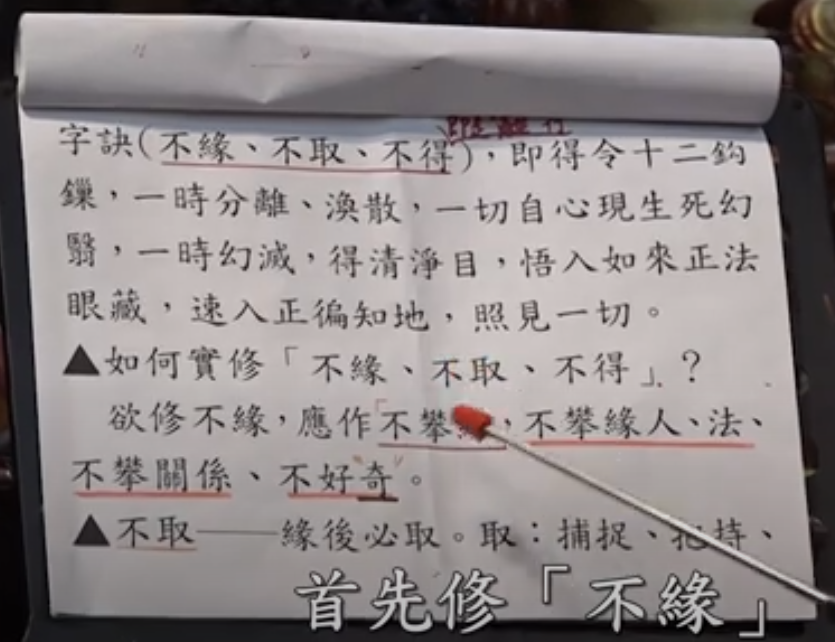 即是離行
字訣(不緣、不取、不得)，即得令十二鈎
鏁，一時分離、渙散，一切自心現生死幻
翳，一時幻滅，得清淨目，悟入如來正法
眼藏，速入正徧知地，照見一切。
▲如何實修「不緣、不取、不得」？
欲修不緣，應作「不攀，不攀緣人、法、
不攀關係、不好"奇"。
▲不取——緣後必取。取：捕捉、把持、
首先修「不緣」